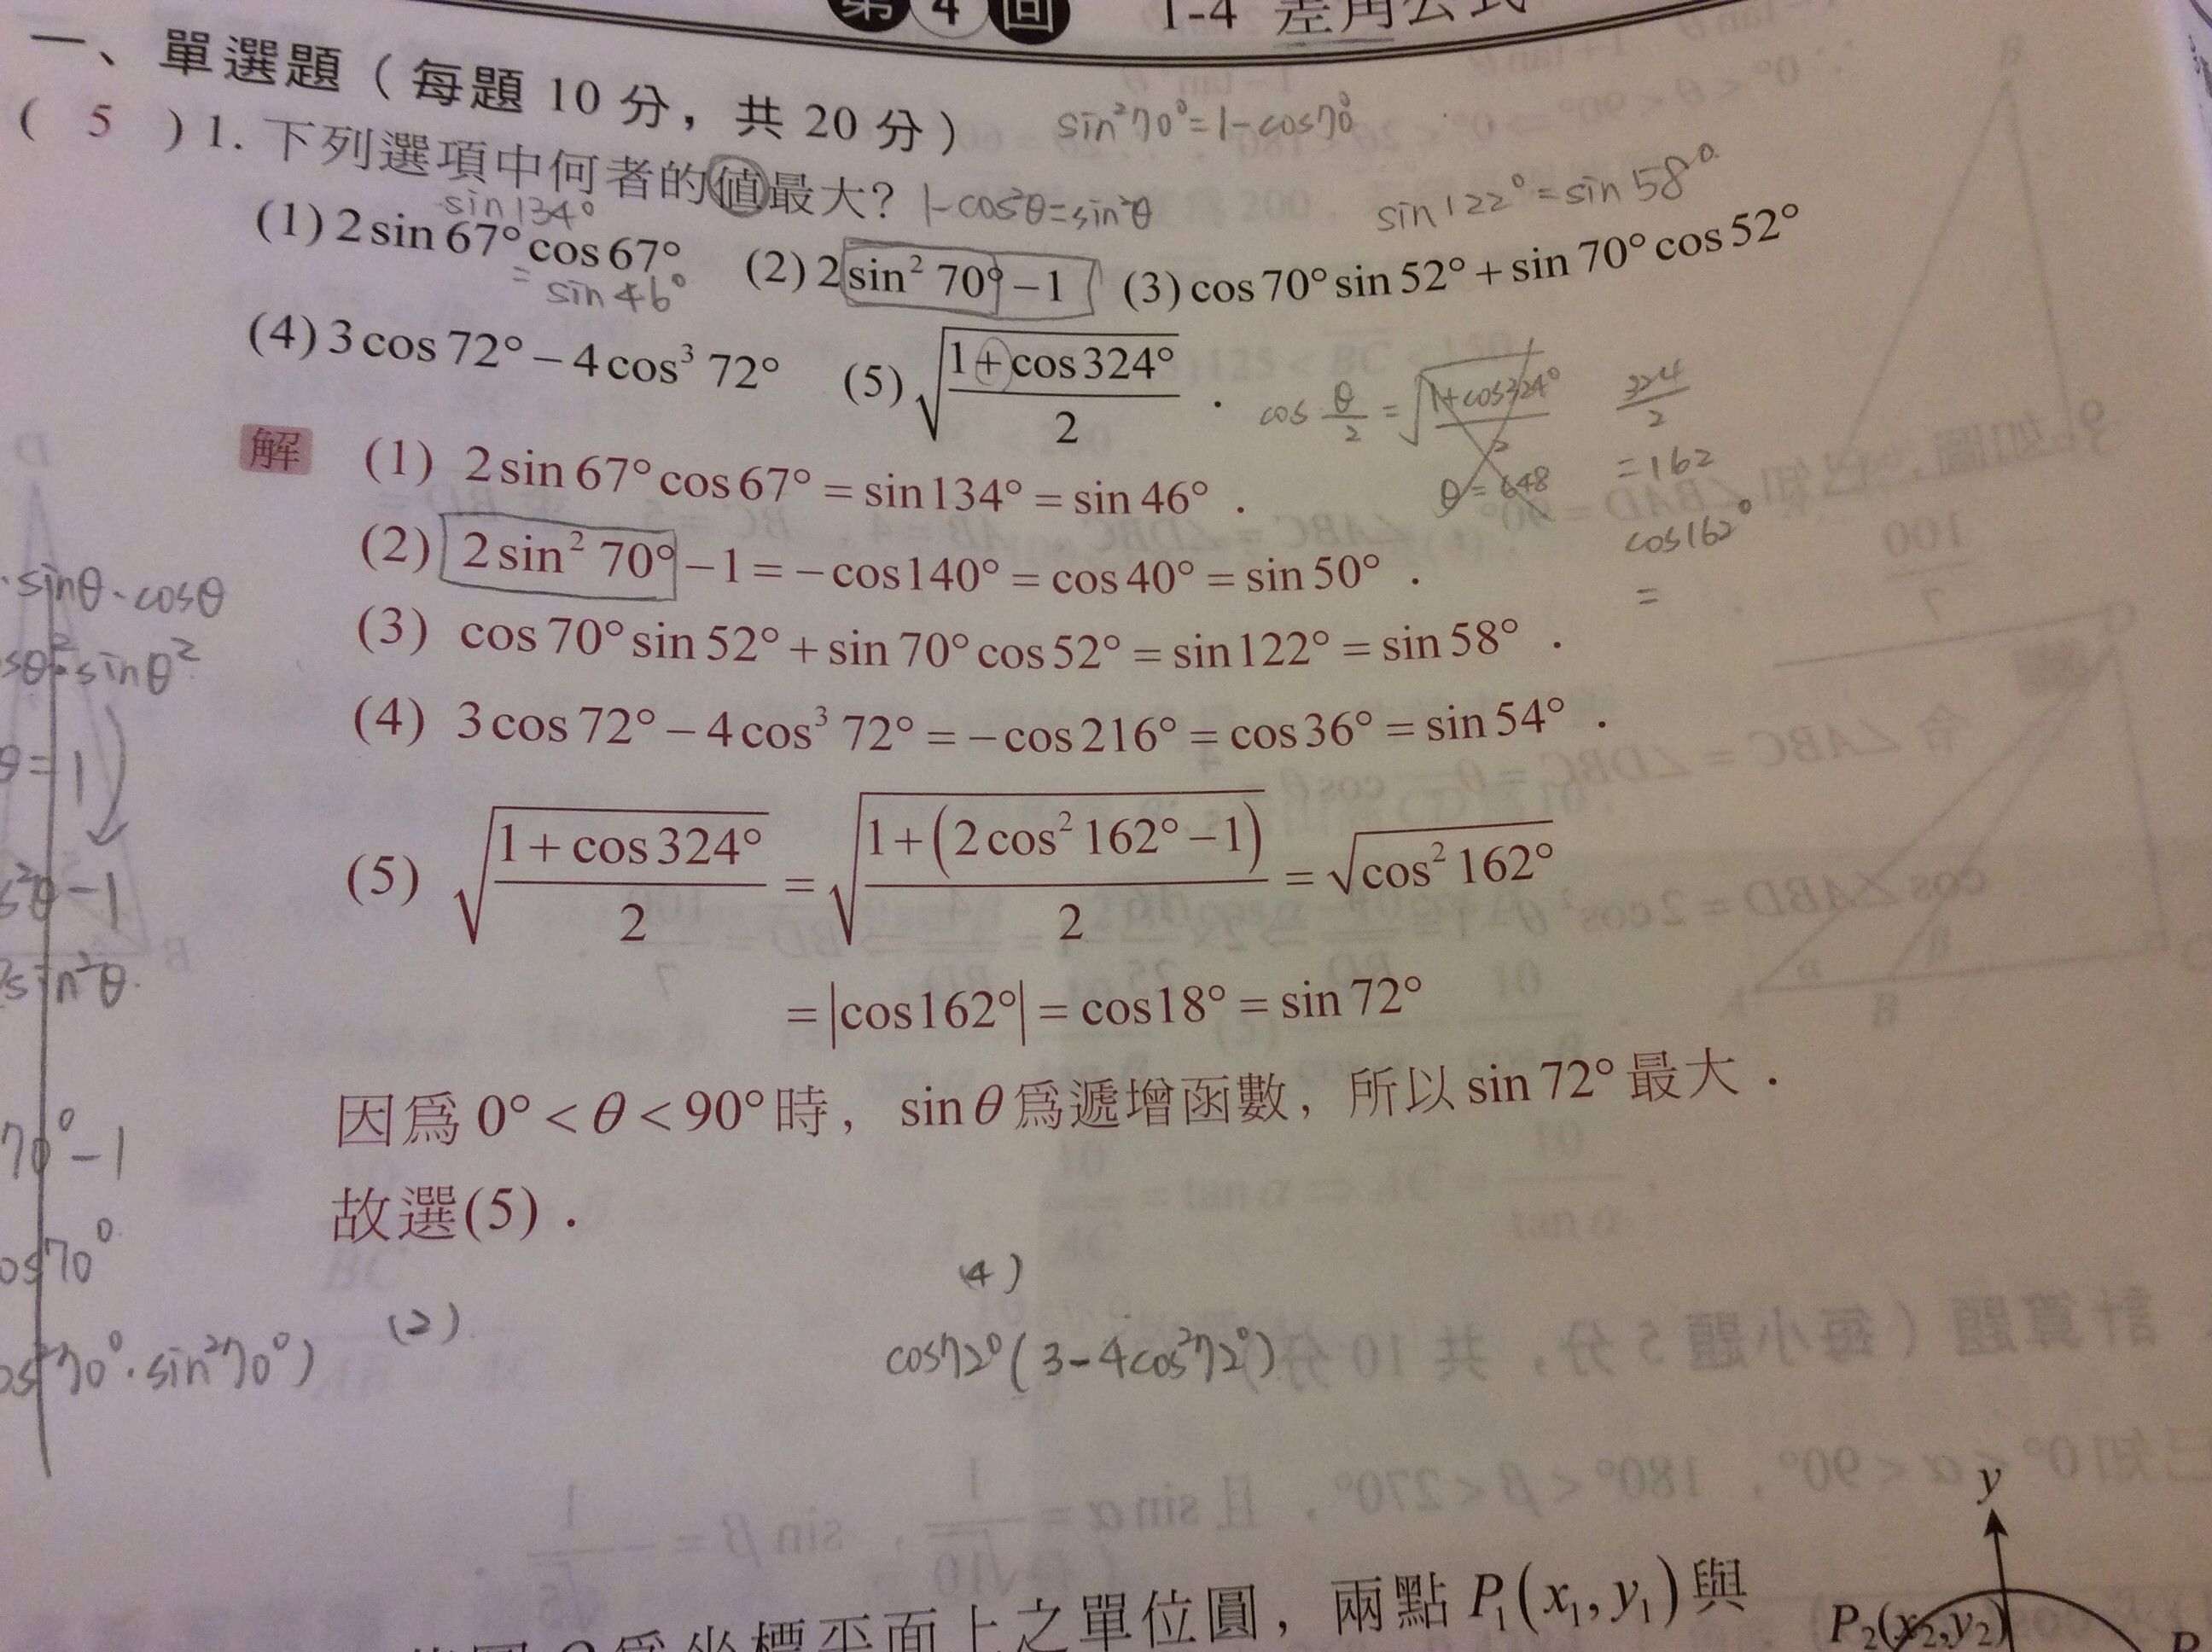 第4回 1-4 差角公式
一、單選題（每題 10 分，共 20 分）
sin²70°=1-cos70°
( 5 ) 1. 下列選項中何者的值最大？ 1-cos²θ=sin²θ
sin134°
sin122°=sin58°
(1) 2 sin 67° cos 67° (2) 2 sin² 70° − 1 (3) cos 70° sin 52° + sin 70° cos 52°
= sin46°
(4) 3 cos 72° − 4 cos³ 72° (5) √((1 + cos 324°)/2) .
cos θ/2 = √((1+cos324°)/2)
θ=648
324/2
=162
cos162°
=
解 (1) 2 sin 67° cos 67° = sin 134° = sin 46° .
(2) 2 sin² 70° − 1 = − cos 140° = cos 40° = sin 50° .
(3) cos 70° sin 52° + sin 70° cos 52° = sin 122° = sin 58° .
(4) 3 cos 72° − 4 cos³ 72° = − cos 216° = cos 36° = sin 54° .
(5) √((1 + cos 324°)/2) = √((1 + (2 cos² 162° − 1))/2) = √(cos² 162°)
= |cos 162°| = cos 18° = sin 72°
因為 0° < θ < 90° 時，sin θ 為遞增函數，所以 sin 72° 最大 .
故選(5) .
sinθ·cosθ
sinθ²
θ=1
θ-1
sin²θ
70°-1
70°
70°·sin²70°)
(2)
(4)
cos72°(3-4cos²72°)
為坐標平面上之單位圓，兩點 P₁(x₁, y₁) 與
y
P₂(x₂, y₂)